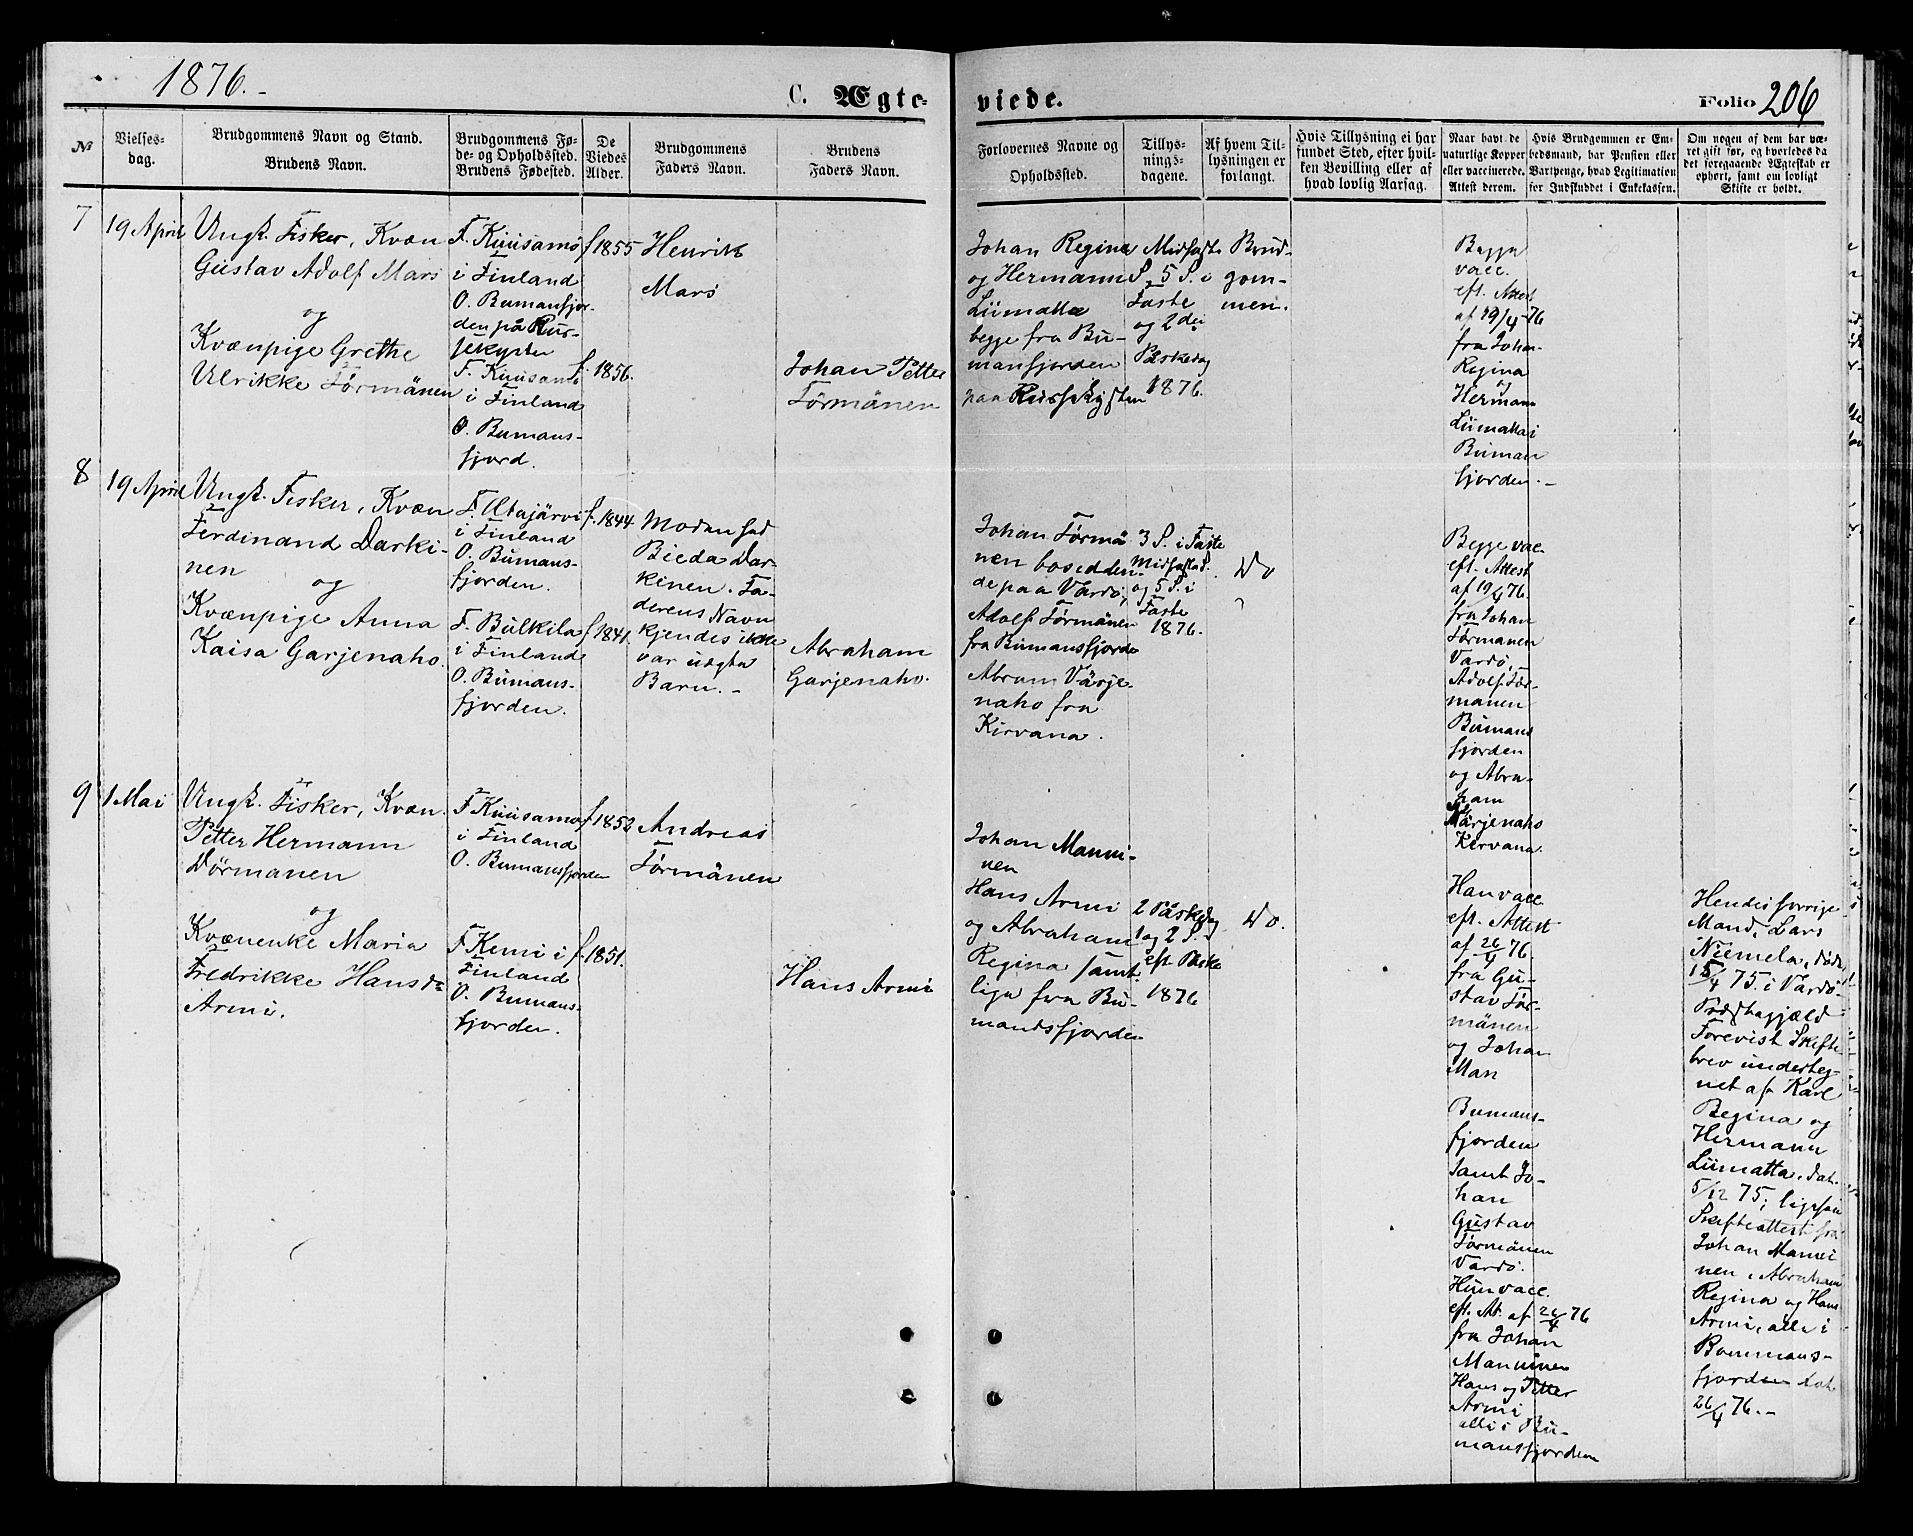 1876.-
C. Ægte-
viede.
Folio 206
№
Vielses-
dag.
Brudgommens Navn og Stand.
Brudens Navn.
Brudgommens Fø-
de- og Opholdssted.
Brudens Fødested.
De
Viedes
Alder.
Brudgommens
Faders Navn.
Brudens
Faders Navn.
Forlovernes Navne og
Opholdssted.
Tillys-
nings-
dagene.
Af hvem Til-
lysningen er
forlangt.
Hvis Tillysning ei har
fundet Sted, efter hvil-
ken Bevilling eller af
hvad lovlig Aarsag.
Naar havt de
naturlige Kopper
eller vaccinerede.
Attest derom.
Hvis Brudgommen er Em-
bedsmand, har Pension eller
Vartpenge, hvad Legitimation
for Indskuddet i Enkekassen.
Om nogen af dem har væ-
ret gift før, og hvorledes da
det foregaaende Ægteskab er
ophørt, samt om lovligt
Skifte er holdt.
7
19 April
Ungk. Fisker, Kvæn
Gustav Adolf Mars
og
Kvænpige Grethe
Ulrikke Törmänen
F. Kuusamo
i Finland
O. Bumansfjor-
den på Rus-
sekysten
F. Kuusamo
i Finland
O. Bumans-
fjord.
f. 1855
f. 1856.
Henrik
Mars
Johan Petter
Törmänen
Johan Regina
og Hermann
Liimatta
begge fra Bu-
mansfjorden
paa Russekysten
Midfaste
S. 5 S. i
Faste
og 2den
Påskedag
1876.
Brud-
gom-
men.
Begge
vacc.
eft. Attest
af 19/4 -76
fra Johan
Regina
og
Hermann
Liimatta i
Buman
fjorden.-
8
19 April
Ungk. Fisker, Kvæn
Ferdinand Darki-
nen
og
Kvænpige Anna
Kaisa Garjenaho.
F. Utajärvi
i Finland
O. Bumans-
fjorden.
F. Bulkila
i Finland
O. Bumans-
fjorden.
f. 1844
f. 1841.
Moderen
Dar-
kinen. Fa-
derens Navn
kjendes ikke
var uægte
Barn.-
Abraham
Garjenaho.
Johan Törmä
nen
de paa Vardö,
Adolf Törmänen
fra Bumansfjorden
Abram Värje-
naho fra
Kirvana.
3 S. i Faste
Midfastes.
og 5 S. i
Faste
1876.
Do
Begge vac.
eft. Attest
af 19/4 76.
fra Johan
Törmanen
Vardö,
Adolf Tör-
manen
Bumans
fjorden
og Abra-
ham
Värjenaho
Kirvana.
9
1 Mai
Ungk. Fisker, Kvæn
Petter Hermann
Dörmanen
og
Kvænenke Maria
Fredrikke Hansdr
Armi.
F. Kuusamo
i Finland
O. Bumansfjorden
F. Kemi i
Finland
O. Bumans-
fjorden.
f. 1852
f. 1851.
Andreas
Törmänen
Hans Armi
Johan Manni-
nen
Hans Armi
og Abraham
Regina samt-
lige fra Bu-
mandsfjorden
2 Påskedag
1 og 2 S.
eft. Påske
1876
Do.
Han vacc.
eft. Attest
af 26/4 76.
fra Gu-
stav Tör-
mänen
og Johan
Man
Bumans-
fjorden
samt Jo-
han
Gustav
Törmänen
Vardö.
Hun vacc.
eft. At. af 26/4 76
fra Johan
Manninen
Hans og Petter
Armi
alle i Bu-
mansfjorden
Hendes forrige
Mand, Lars
Niemela, døde
15/4 75. i Vardø
Præstegjæld
Forevist Skifte
brev underteg-
net af Karl
Regina og
Hermann
Liimatta, dat.
5/12 75; ligesom
Skifteattest fra
Johan Manni
nen, Abraham
Regina og Hans
Armi, alle i
Bommans-
fjorden dat.
26/4 76.-